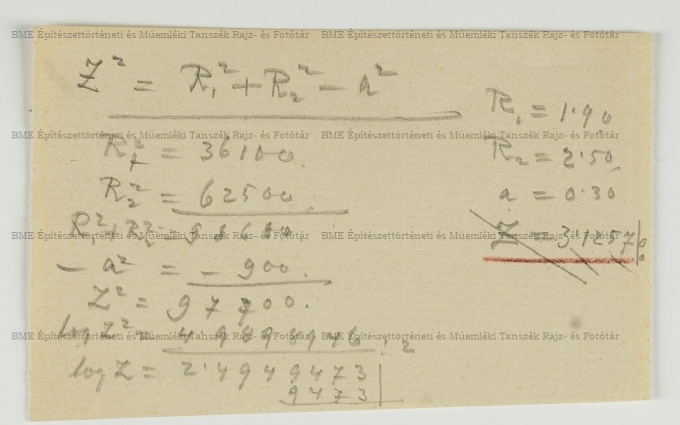 BME Építészettörténeti és Műemléki Tanszék Rajz- és Fotótár BME Építészettörténeti és Műemléki Tanszék Rajz- és Fotótár
Z² = R₁² + R₂² − a²
R₁ = 1·90
BME Építészettörténeti és Műemléki Tanszék Rajz- és Fotótár BME Építészettörténeti és Műemléki Tanszék Rajz- és Fotótár
R₁² = 36100
R₂ = 2·50
R₂² = 62500
a = 0·30
BME Építészettörténeti és Műemléki Tanszék Rajz- és Fotótár BME Építészettörténeti és Műemléki Tanszék Rajz- és Fotótár
R₁² + R₂² = 98600
Z = 3.1257
− a² = − 900
Z² = 97700.
BME Építészettörténeti és Műemléki Tanszék Rajz- és Fotótár BME Építészettörténeti és Műemléki Tanszék Rajz- és Fotótár
log Z² =
log Z = 2·4949473
9473